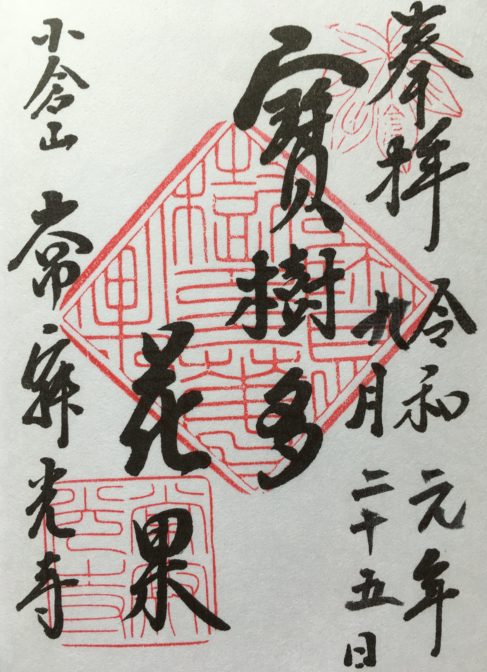 奉拝 令和元年
九月二十五日
寶樹多
花果
小倉山 常寂光寺